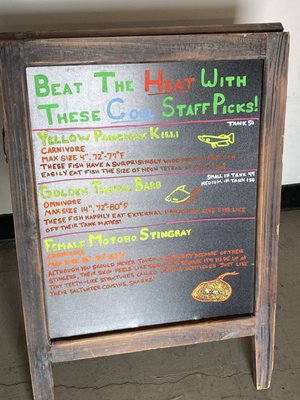 BEAT THE HEAT WITH
THESE COOL STAFF PICKS!
YELLOW PANCHAX KILLI
TANK 50
CARNIVORE
MAX SIZE 4", 72°-79°F
THESE FISH HAVE A SURPRISINGLY WIDE
EASILY EAT FISH THE SIZE OF NEON TETRAS
GOLDEN BARB
SMALL IN TANK
MEDIUM IN TANK 130
OMNIVORE
MAX SIZE 14", 72°-80°F
THESE FISH HAPPILY EAT EXTERNAL LIKE
OFF THEIR TANK MATES!
FEMALE MOTORO STINGRAY
CARNIVORE
MAX SIZE
ALTHOUGH YOU SHOULD NEVER TOUCH BECAUSE OF THEIR
STINGERS, THEIR SKIN FEELS LIKE MADE UP OF
TINY TEETH-LIKE STRUCTURES CALLED JUST LIKE
THEIR SALTWATER COUSINS, SHARKS.